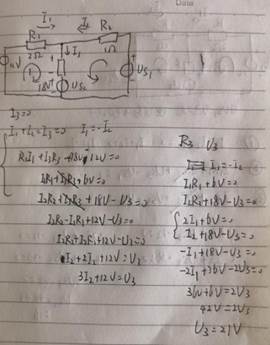 I₁ I₂
R₁ R₂
2Ω 1Ω
I₃
18V US₁
I₃=0
I₁+I₂-I₃=0 I₁=-I₂
R₁I₁+I₃R₃-18V+12V=0
I₁R₁+I₃R₃-6V=0
I₂R₂+I₃R₃+18V-U₃=0
I₂R₂-I₁R₁+12V-U₃=0
I₂R₂+I₂R₁+12V-U₃=0
I₂+2I₂+12V=U₃
3I₂+12V=U₃
R₃ U₃
I₁=-I₂
I₁R₁+6V=0
I₂R₂+18V-U₃=0
2I₁+6V=0
I₂+18V-U₃=0
-I₁+18V-U₃=0
-2I₁+36V-2U₃=0
36V+6V=2U₃
42V=2U₃
U₃=21V